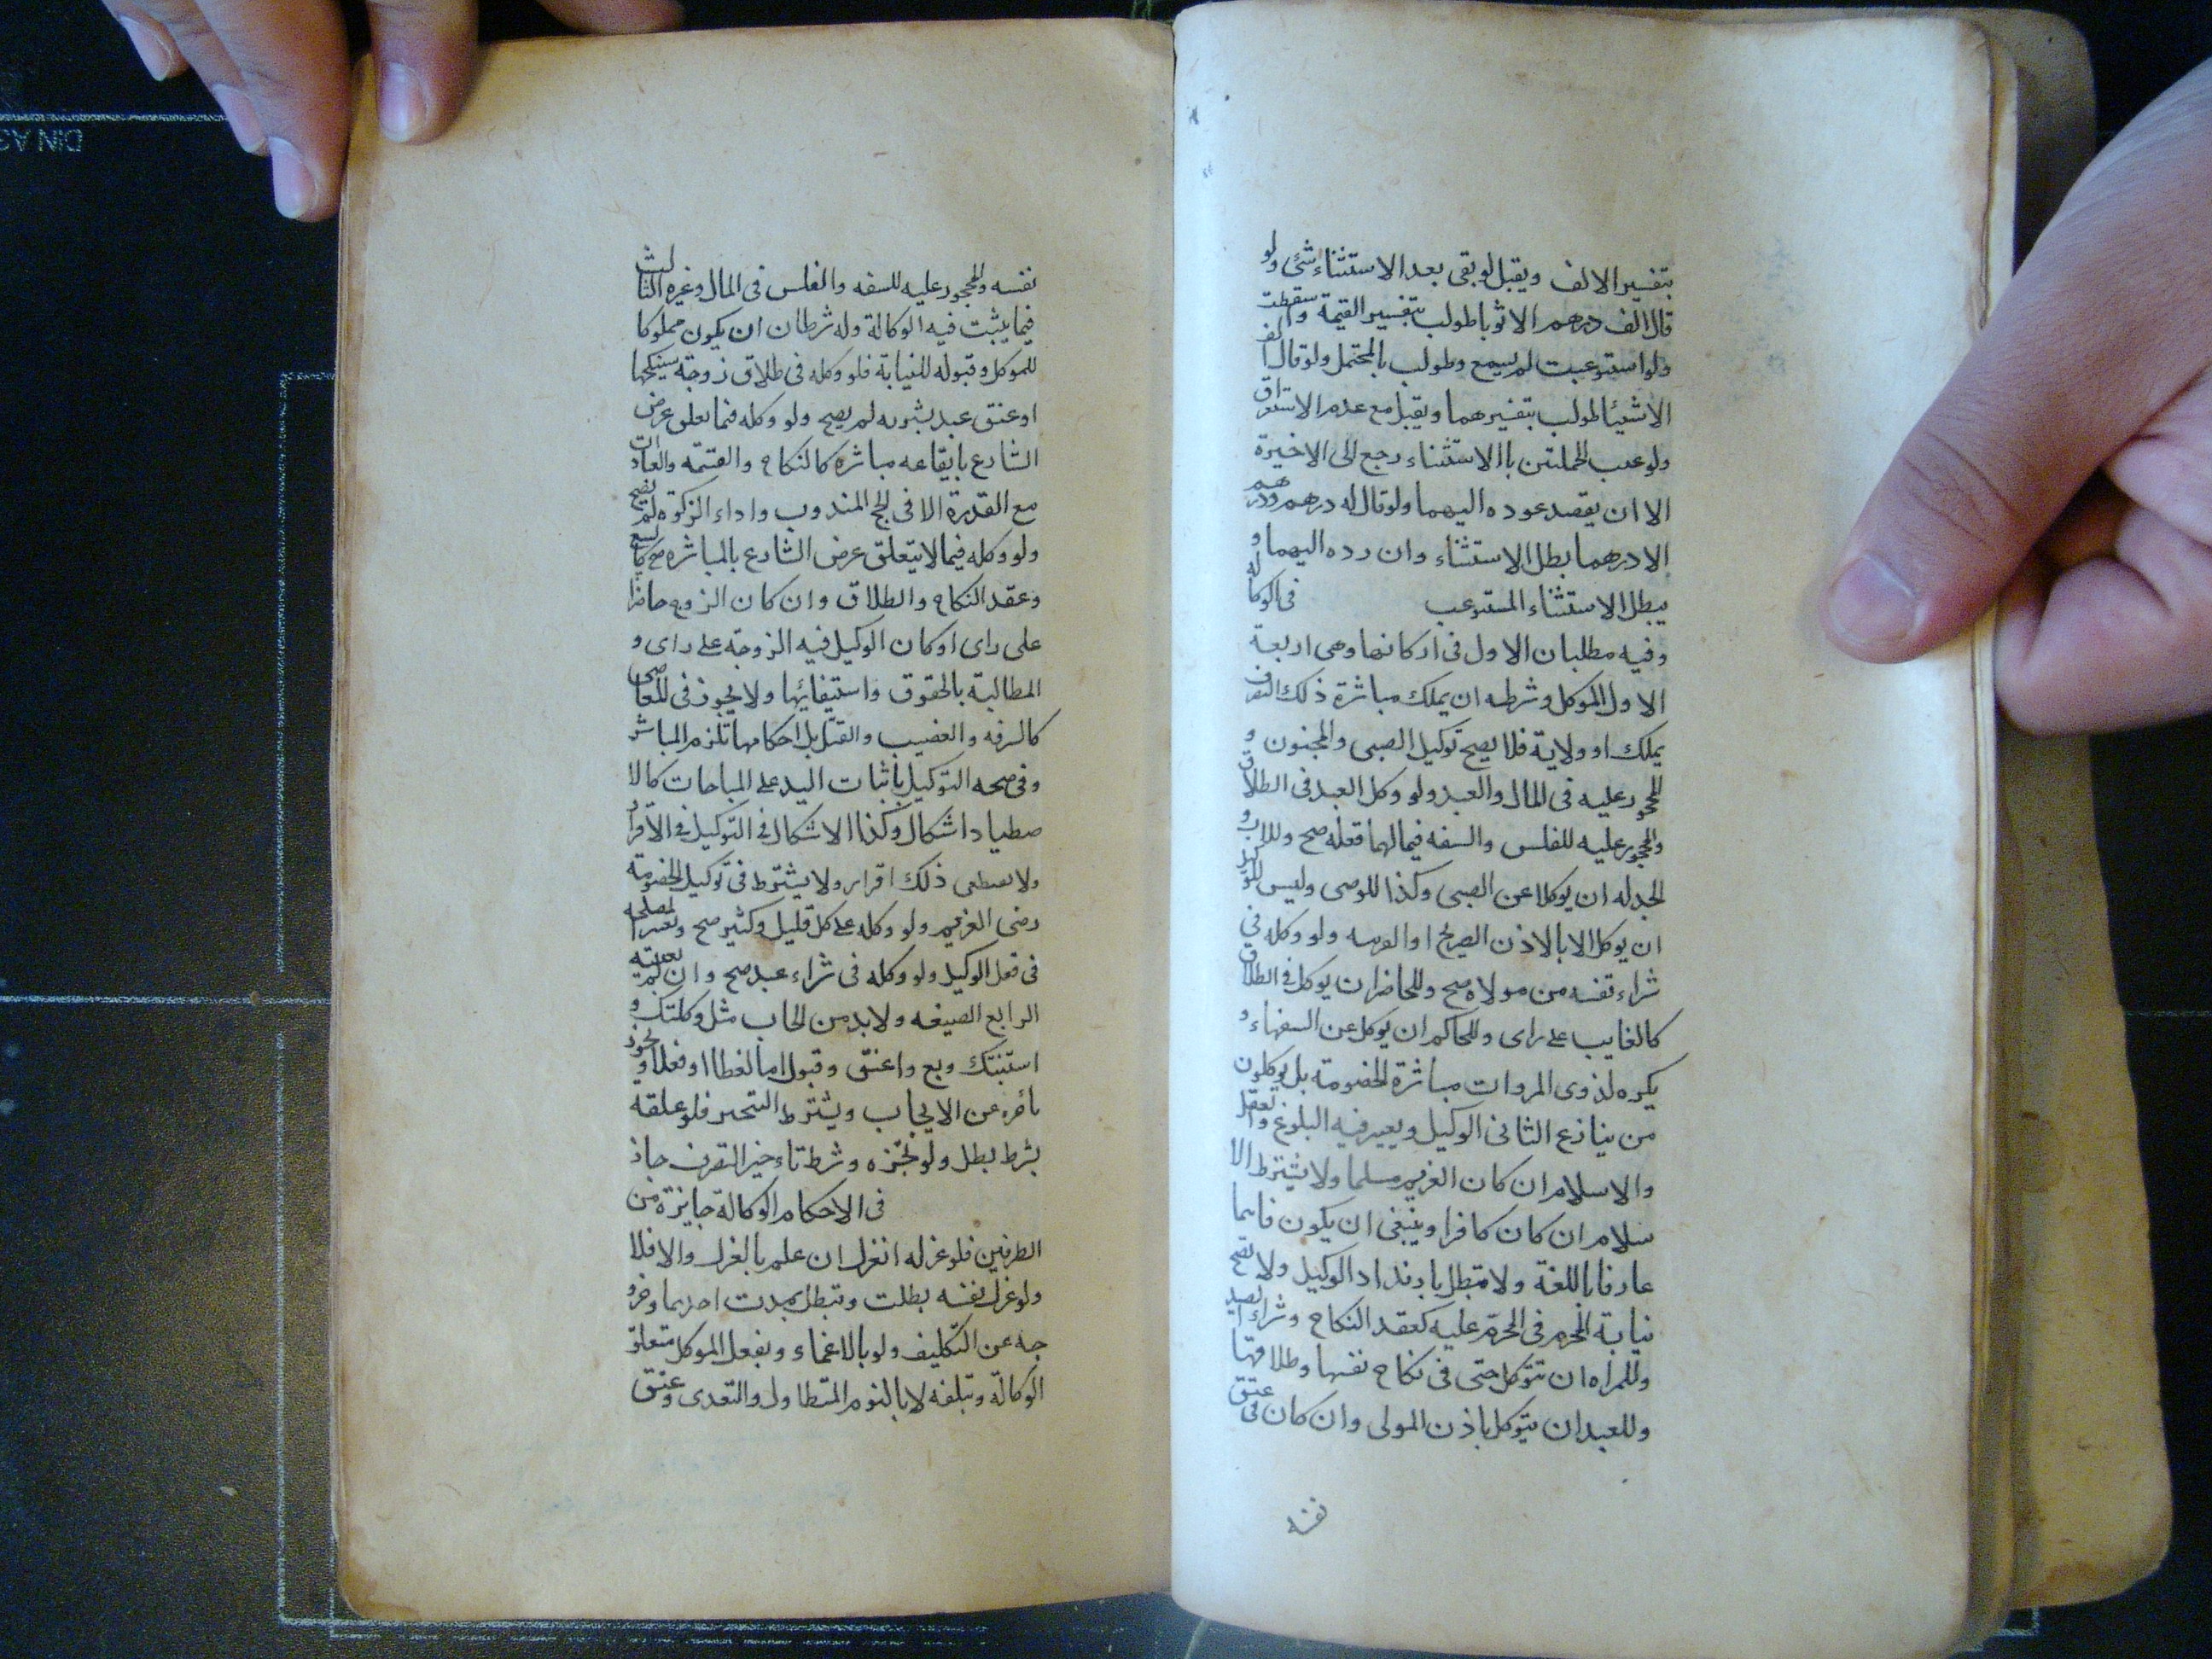 بتفسير الالف ويقبل لو بقى بعد الاستثناء شئ ولو
قال الف درهم الا ثوبا طولب بتفسير القيمة وسقطت
ولو استوعبت لم يسمع وطولب بالمحتمل ولو قال الف
الا شيئا طولب بتفسيرهما ويقبل مع عدم الاستغراق
ولو عقب الجملتين باالاستثناء رجع الى الاخيرة
الا ان يقصد عوده اليهما ولو قال له درهم ودرهم
الا درهما بطل الاستثناء وان رده اليهما و
يبطل الاستثناء المستوعب فى الوكالة
وفيه مطلبان الاول فى اركانها وهى اربعة
الاول الموكل وشرطه ان يملك مباشرة ذلك التصرف
يملك او ولاية فلا يصح توكيل الصبى والمجنون و
المحجور عليه فى المال والعبد ولو وكل العبد فى الطلاق
والمحجور عليه للفلس والسفه فيمالهما فعله صح وللاب و
الجد له ان يوكلا عن الصبى وكذا للوصى وليس للوكيل
ان يوكل الا بالاذن الصريح او القرينه ولو وكله فى
شراء نفسه من مولاه صح وللحاضر ان يوكل فى الطلاق
كالغايب على راى وللحاكم ان يوكل عن السفهاء و
يكره لذوى المروات مباشرة الخصومة بل يوكلون
من ينازع الثانى الوكيل ويعتبر فيه البلوغ والعقل
والاسلام ان كان الغريم مسلما ولا يشترط الا
سلام ان كان كافرا وينبغى ان يكون فاهما
عارفا باللغة ولا تبطل بارتداد الوكيل ولا تصح
نيابة المحرم فى المحرم عليه كعقد النكاح وشراء الصيد
وللمراه ان تتوكل حتى فى نكاح نفسها وطلاقها
وللعبد ان يتوكل باذن المولى وان كان فى عتق
نفسه
نفسه والمحجور عليه للسفه والفلس فى المال وغيره الثالث
فيما يثبت فيه الوكالة وله شرطان ان يكون مملوكا
للموكل وقبوله للنيابة فلو وكله فى طلاق زوجة سينكحها
او عتق عبد يشتريه لم يصح ولو وكله فيما تعلق غرض
الشارع بايقاعه مباشرة كالنكاح والقسمة والعبادات
مع القدرة الا فى الحج المندوب واداء الزكوة لم تصح
ولو وكله فيما لا يتعلق غرض الشارع بالمباشره صح كالبيع
وعقد النكاح والطلاق وان كان الزوج حاضرا
على راى او كان الوكيل فيه الزوجة على راى و
المطالبة بالحقوق واستيفائها ولا يجوز فى المعاصى
كالسرقه والغصب والقتل بل احكامها تلزم المباشر
وفى صحه التوكيل باثبات اليد على المباحات كالا
صطياد اشكال وكذا الاشكال فى التوكيل فى الاقرار
ولا يقتضى ذلك اقرار ولا يشترط فى توكيل الخصومة
رضى الغريم ولو وكله على كل قليل وكثير صح وتعتبر المصلحه
فى فعل الوكيل ولو وكله فى شراء عبد صح وان لم يعينه
الرابع الصيغه ولا بد من ايجاب مثل وكلتك و
استنبتك وبع واعتق وقبول اما لفظا او فعلا ويجوز
تاخره عن الايجاب ويشترط التنجيز فلو علقه
بشرط بطل ولو نجزه وشرط تاءخير التصرف جاز
فى الاحكام الوكالة جايزة من
الطرفين فلو عزله انعزل ان علم بالعزل والا فلا
ولو عزل نفسه بطلت وتبطل بموت احدهما وخرو
جه عن التكليف ولو بالاغماء وبفعل الموكل متعلق
الوكالة وتلفه لا بالنوم المتطاول والتعدى وعتق